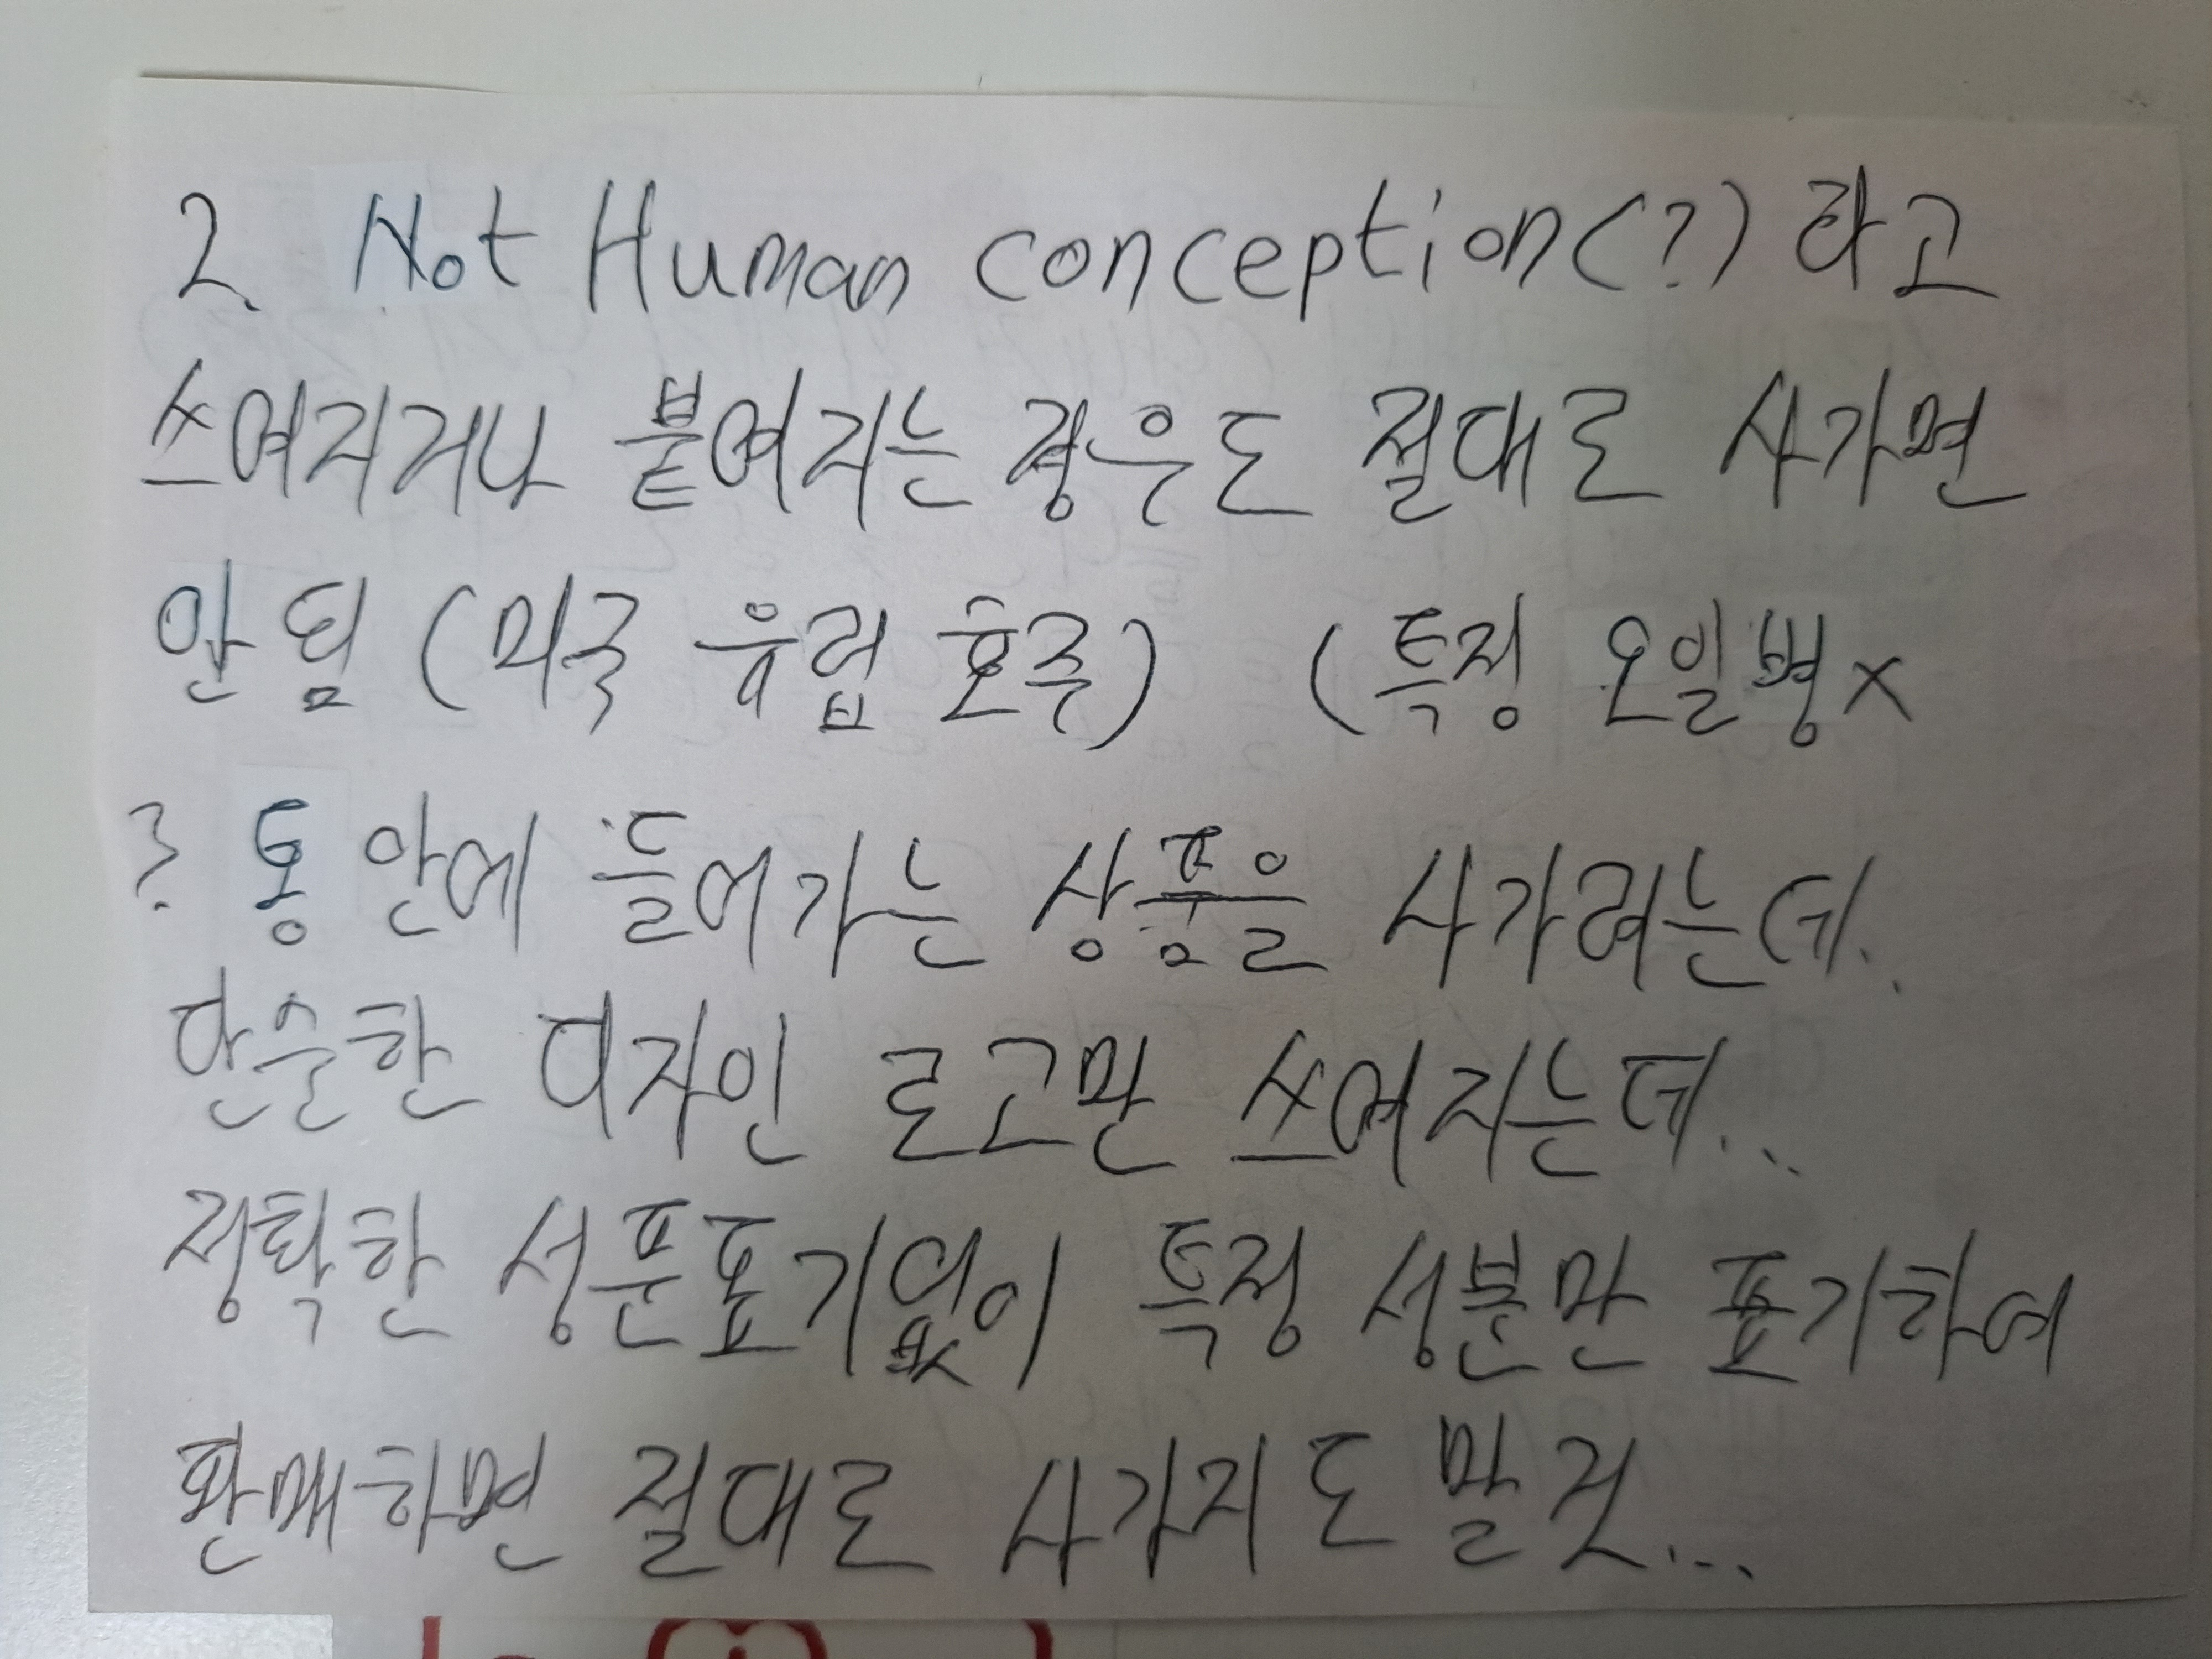 2. Not Human conception(?)라고
쓰여지거나 붙여지는 경우도 절대로 사가면
안됨 (미국 유럽 호주) (특정 오일병x
3. 통 안에 들어가는 상품을 사가려는데..
단순한 디자인 로고만 쓰여지는데...
정확한 성분표기없이 특정 성분만 표기하여
판매하면 절대로 사가지도 말것...